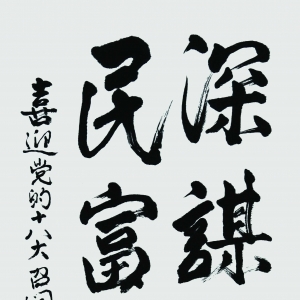 深謀
民富
喜迎党的十八大召开